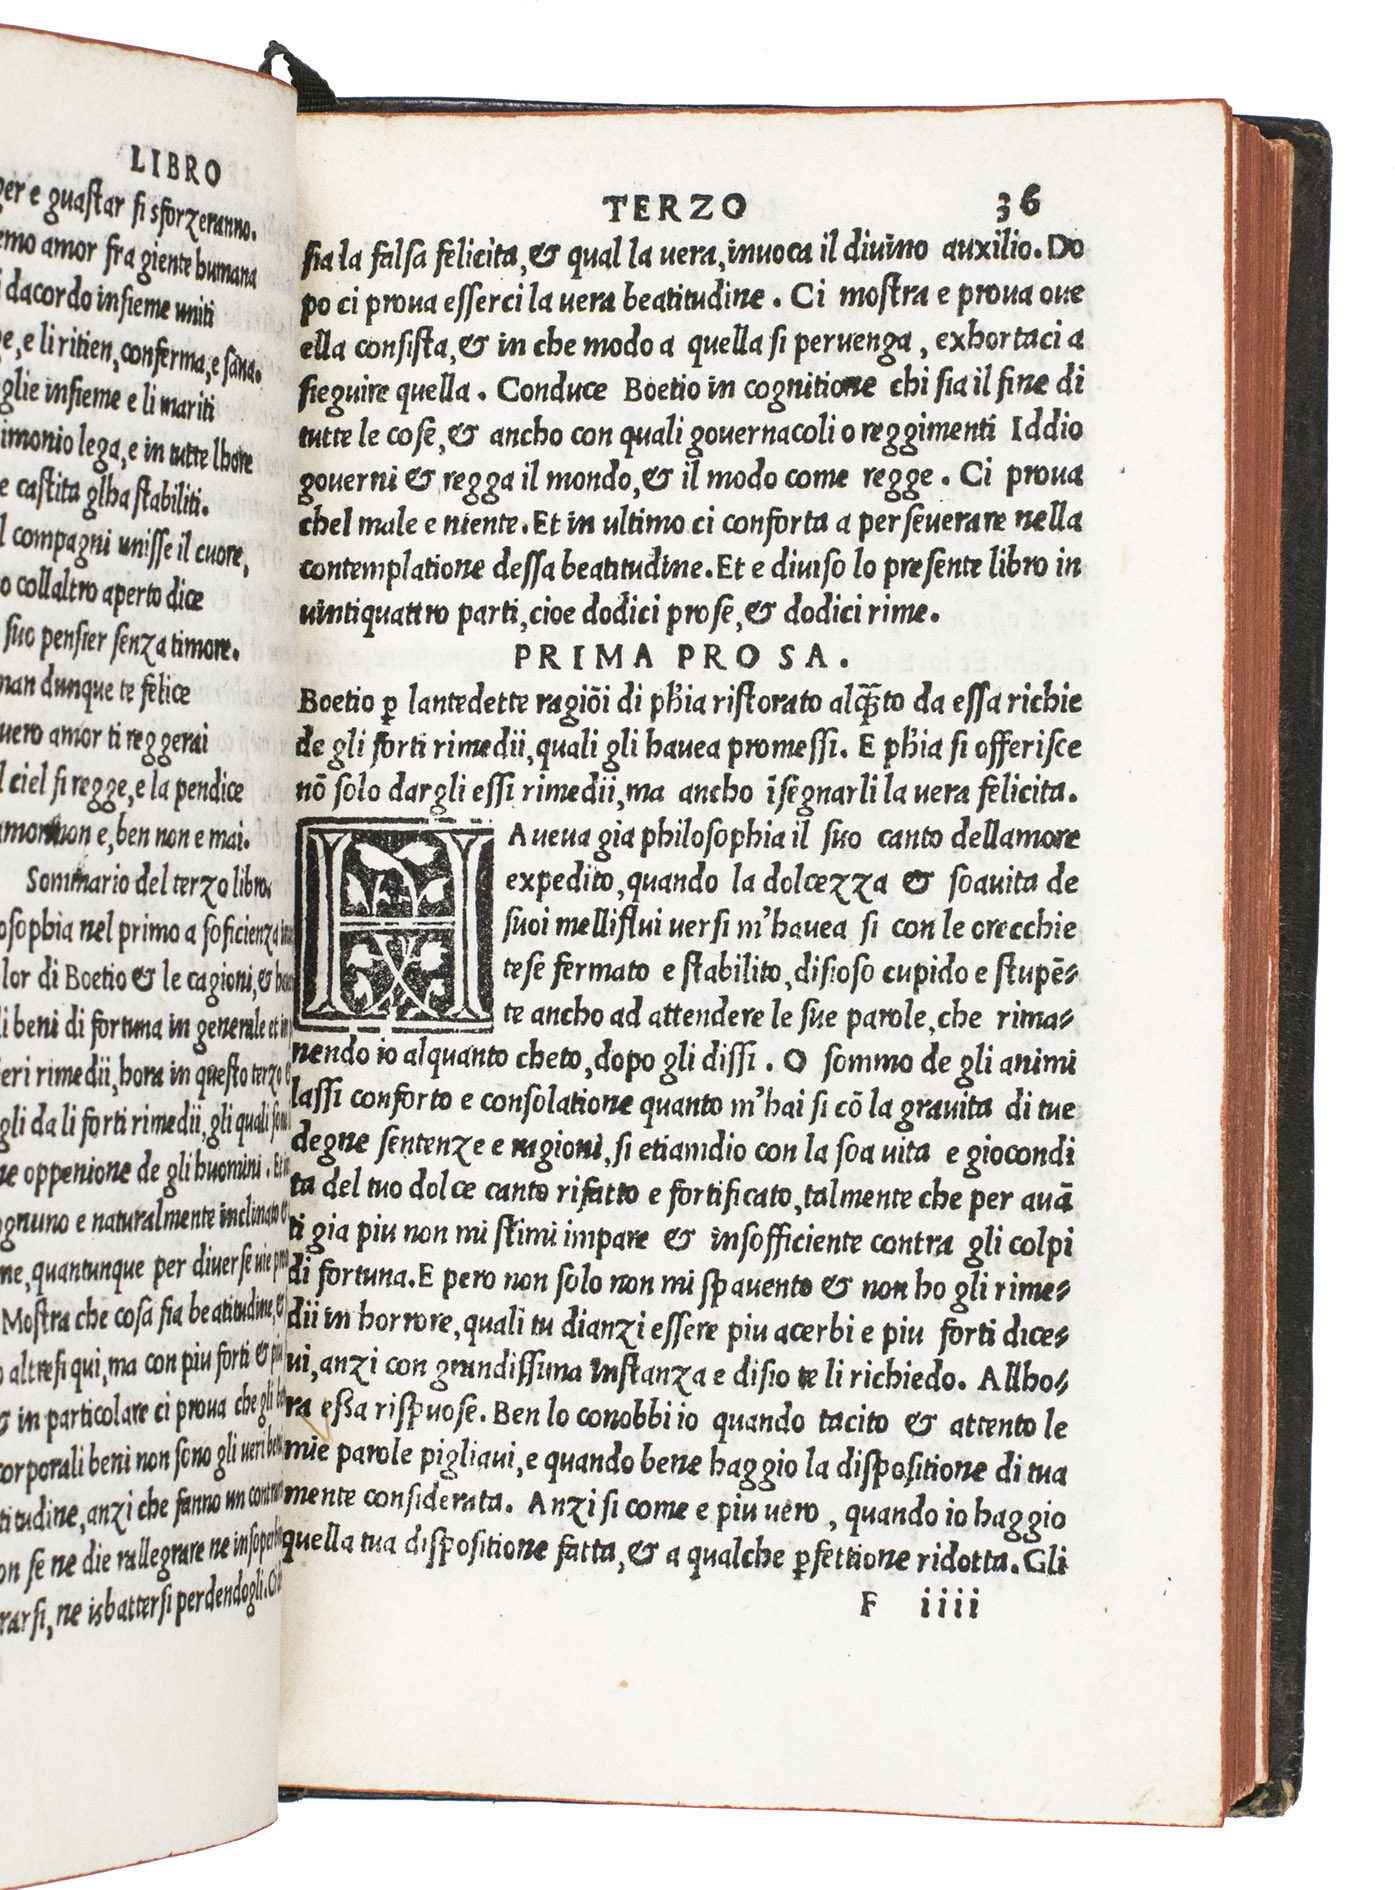 LIBRO
e guastar si sforzeranno.
amor fra giente humana
dacordo insieme uniti
e li ritien, conferma, e sana.
insieme e li mariti
lega, e in tutte lhore
e castita glha stabiliti.
compagni unisse il cuore,
collaltro aperto dice
suo pensier senza timore.
dunque te felice
amor ti reggerai
ciel si regge, e la pendice
non e, ben non e mai.
Sommario del terzo libro.
nel primo a soficienza
di Boetio & le cagioni, &
beni di fortuna in generale et in
rimedii, hora in questo terzo
gli da li forti rimedii, gli quali
oppenione de gli huomini.
e naturalmente inclinato
quantunque per diverse uie
Mostra che cosa sia beatitudine, &
altresi qui, ma con piu forti &
in particolare ci prova che gli
beni non sono gli ueri
anzi che fanno un
se ne die rallegrare ne
ne isbattersi perdendogli.
TERZO 36
sia la falsa felicita, & qual la uera, invoca il divino auxilio. Do
po ci prova esserci la uera beatitudine. Ci mostra e prova ove
ella consista, & in che modo a quella si pervenga, exhortaci a
sieguire quella. Conduce Boetio in cognitione chi sia il fine di
tutte le cose, & ancho con quali governacoli o reggimenti Iddio
governi & regga il mondo, & il modo come regge. Ci prova
chel male e niente. Et in ultimo ci conforta a perseverare nella
contemplatione dessa beatitudine. Et e diviso lo presente libro in
uintiquattro parti, cioe dodici prose, & dodici rime.
PRIMA PROSA.
Boetio ꝑ lantedette ragiōi di pħia ristorato alq̄to da essa richie
de gli forti rimedii, quali gli havea promessi. E pħia si offerisce
nō solo dargli essi rimedii, ma ancho īsegnarli la uera felicita.
HAveva gia philosophia il suo canto dellamore
expedito, quando la dolcezza & soavita de
suoi melliflui versi m'havea si con le orecchie
tese fermato e stabilito, disioso cupido e stupē-
te ancho ad attendere le sue parole, che rima-
nendo io alquanto cheto, dopo gli dissi. O sommo de gli animi
lassi conforto e consolatione quanto m'hai si cō la gravita di tue
degne sentenze e ragioni, si etiamdio con la soa vita e giocondi
ta del tuo dolce canto rifatto e fortificato, talmente che per avā
ti gia piu non mi stimi impare & insofficiente contra gli colpi
di fortuna. E pero non solo non mi spavento & non ho gli rime-
dii in horrore, quali tu dianzi essere piu acerbi e piu forti dice-
vi, anzi con grandissima instanza e disio te li richiedo. Allho-
ra essa rispuose. Ben lo conobbi io quando tacito & attento le
mie parole pigliavi, e quando bene haggio la dispositione di tua
mente considerata. Anzi si come e piu vero, quando io haggio
quella tua dispositione fatta, & a qualche ꝑfettione ridotta. Gli
F iiii